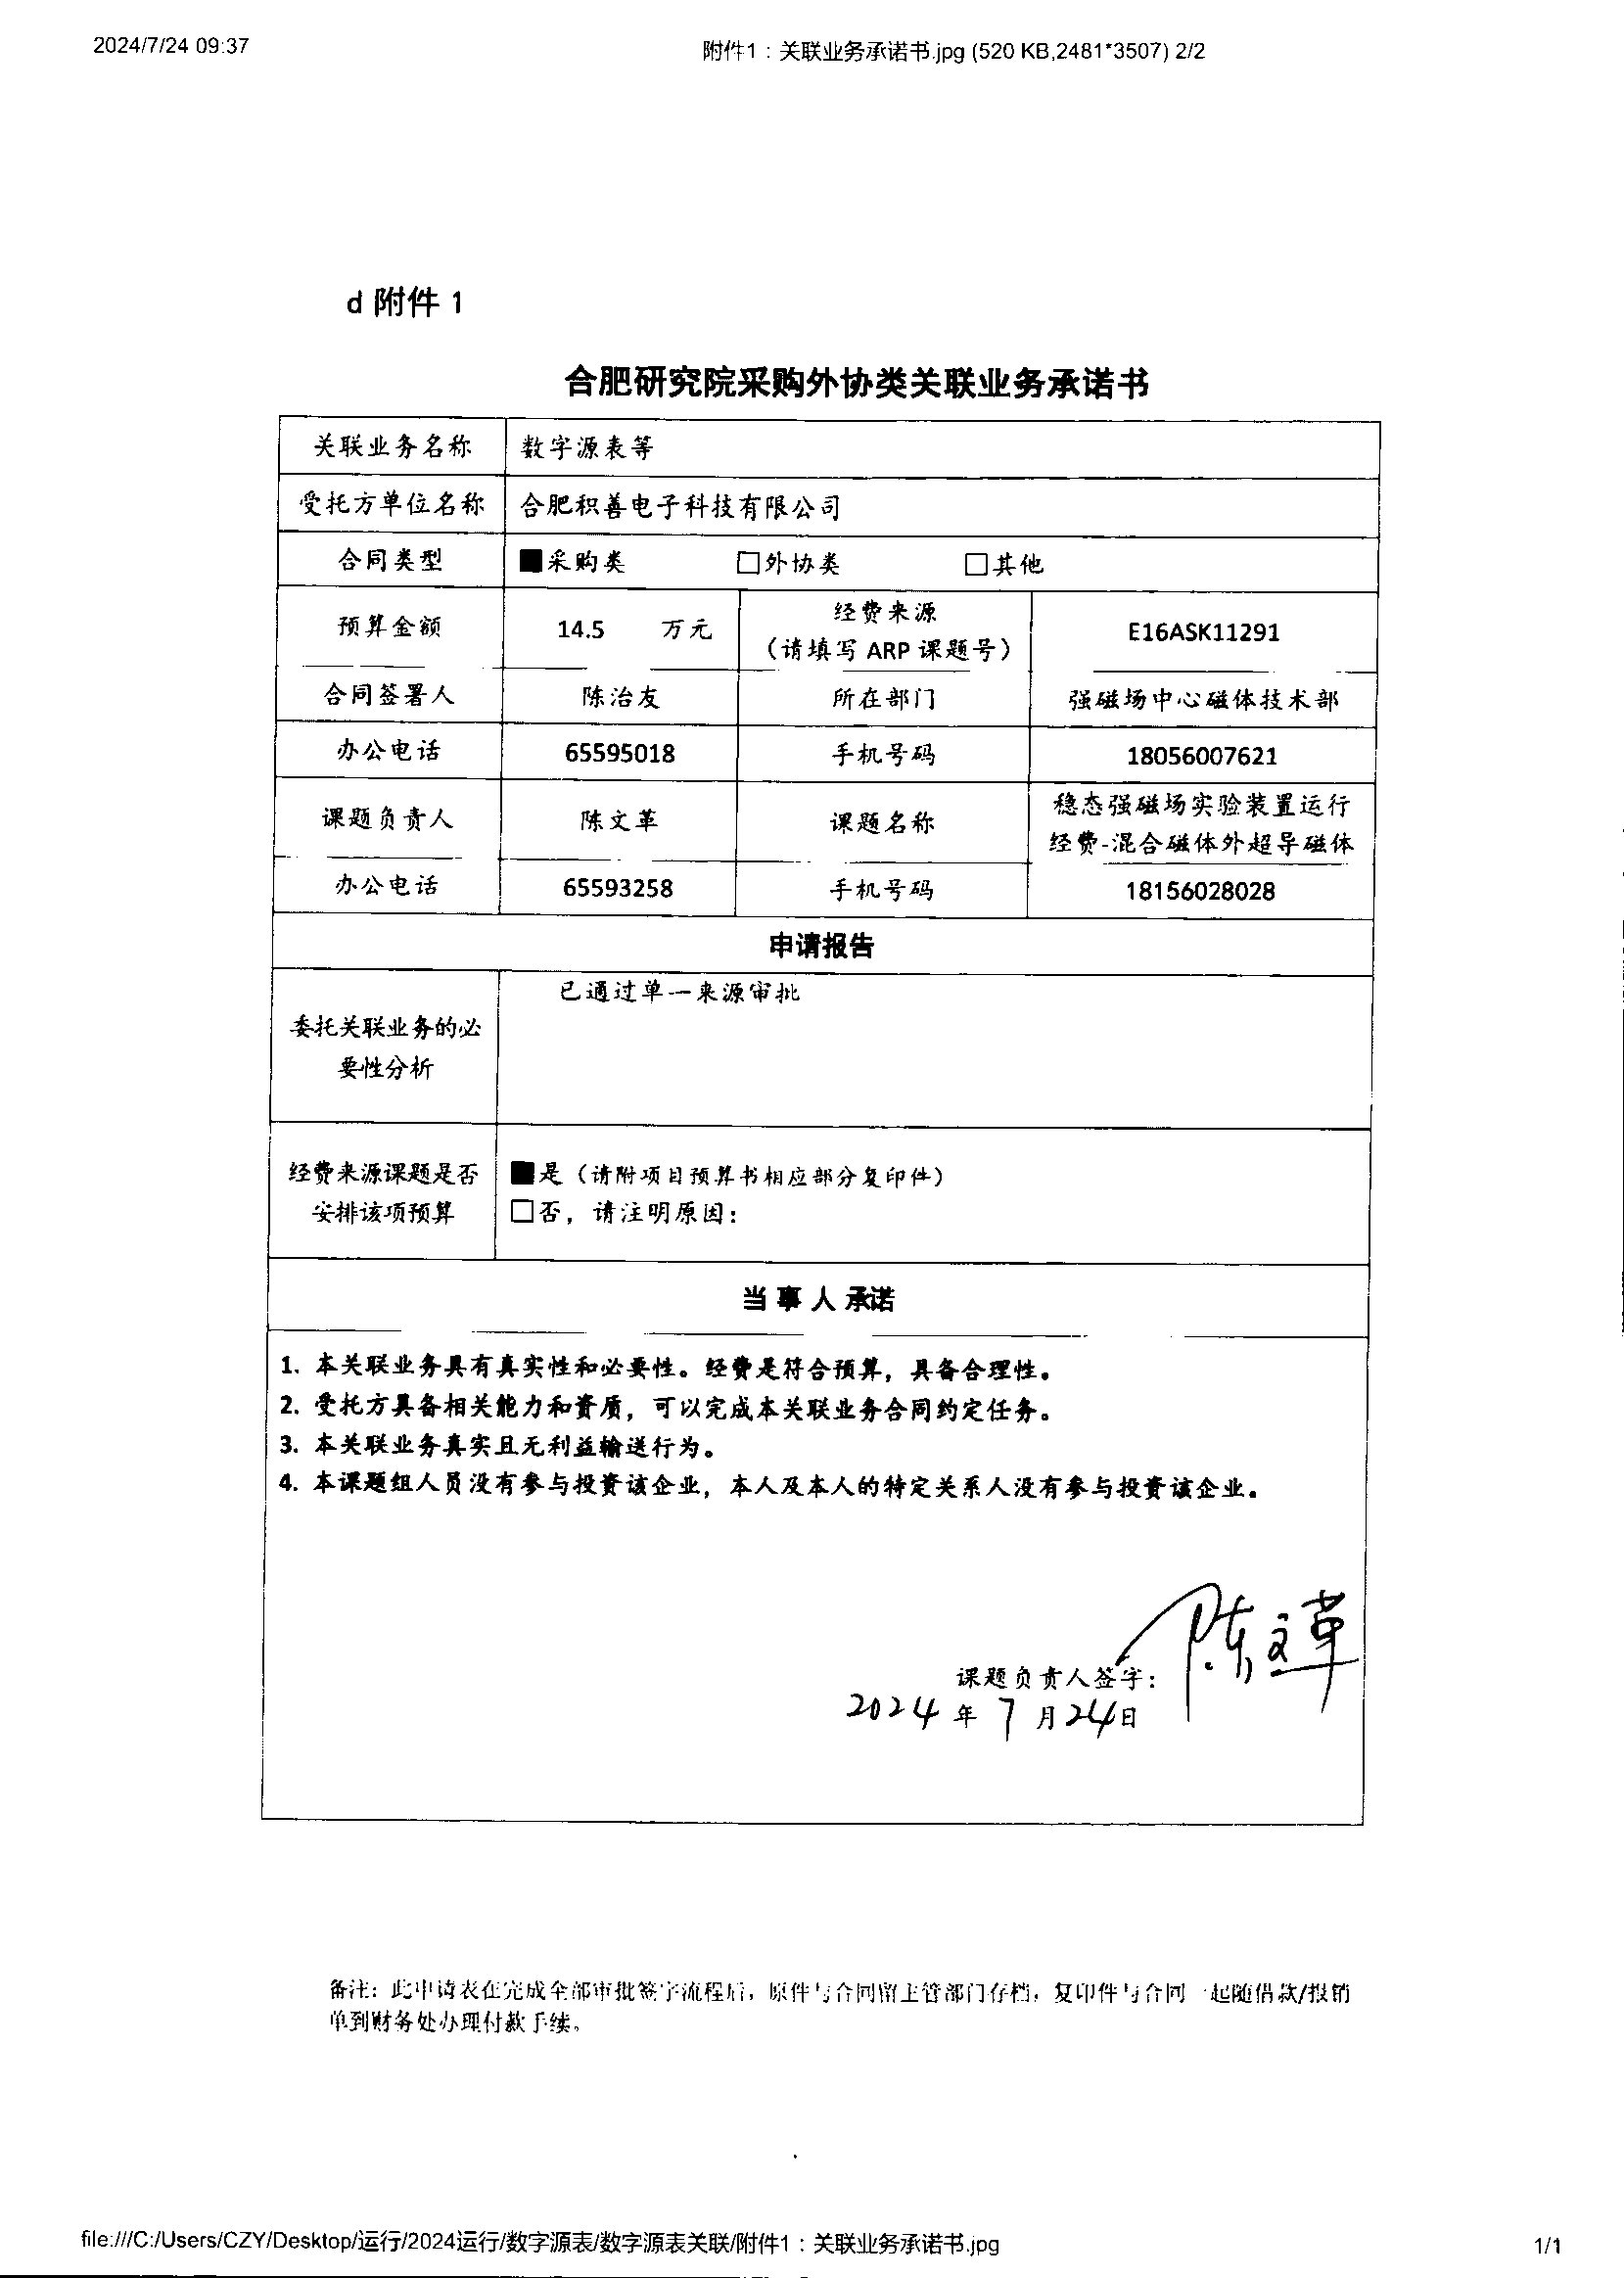 2024/7/24 09:37
附件1：关联业务承诺书.jpg (520 KB,2481*3507) 2/2
d 附件 1
合肥研究院采购外协类关联业务承诺书
关联业务名称 数字源表等
受托方单位名称 合肥积善电子科技有限公司
合同类型 ■采购类 □外协类 □其他
预算金额 14.5 万元 经费来源（请填写 ARP 课题号） E16ASK11291
合同签署人 陈治友 所在部门 强磁场中心磁体技术部
办公电话 65595018 手机号码 18056007621
课题负责人 陈文革 课题名称 稳态强磁场实验装置运行经费-混合磁体外超导磁体
办公电话 65593258 手机号码 18156028028
申请报告
委托关联业务的必要性分析 已通过单一来源审批
经费来源课题是否安排该项预算 ■是（请附项目预算书相应部分复印件）
□否，请注明原因：
当事人承诺
1. 本关联业务具有真实性和必要性。经费是符合预算，具备合理性。
2. 受托方具备相关能力和资质，可以完成本关联业务合同约定任务。
3. 本关联业务真实且无利益输送行为。
4. 本课题组人员没有参与投资该企业，本人及本人的特定关系人没有参与投资该企业。
课题负责人签字：陈文革
2024 年 7 月 24 日
备注：此申请表在完成全部审批签字流程后，原件与合同留主管部门存档，复印件与合同一起随借款/报销
单到财务处办理付款手续。
file:///C:/Users/CZY/Desktop/运行/2024运行/数字源表/数字源表关联/附件1：关联业务承诺书.jpg
1/1